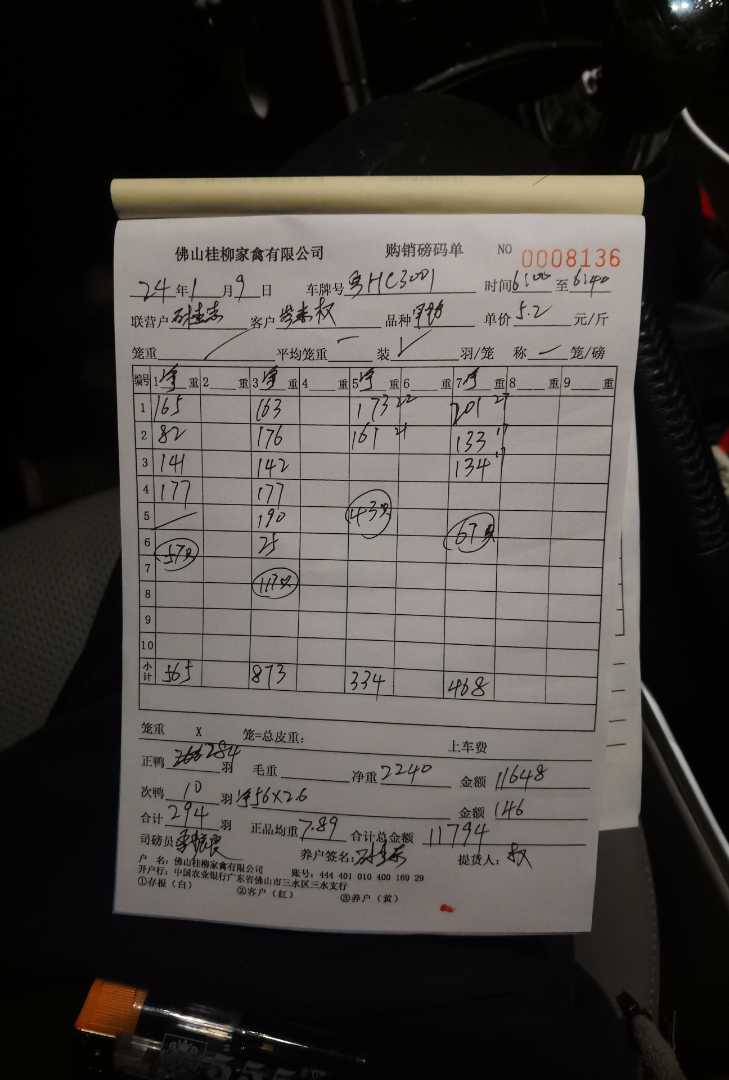 佛山桂柳家禽有限公司 购销磅码单 NO 0008136
24年1月9日 车牌号粤HC3001 时间6:00至6:40
联营户 客户 权 品种 单价5.2元/斤
笼重 平均笼重 装 羽/笼 称 笼/磅
编号 1净重 2重 3净重 4重 5净重 6重 7净重 8重 9重
1 165 163 173 22 201 27
2 82 176 161 21 133 17
3 141 142 134
4 177 177
5 190 43只
6 57只 25 67只
7
8 117只
9
10
小计 565 873 334 468
笼重 X 笼=总皮重: 上车费
正鸭 284羽 毛重 净重2240 金额11648
次鸭10羽 净56X2.6 金额146
合计294羽 正品均重7.89 合计总金额11794
司磅员 养户签名: 提货人:权
户 名:佛山桂柳家禽有限公司 账号:444 401 010 400 169 29
开户行:中国农业银行广东省佛山市三水区三水支行
①存根(白) ②客户(红) ③养户(黄)
555